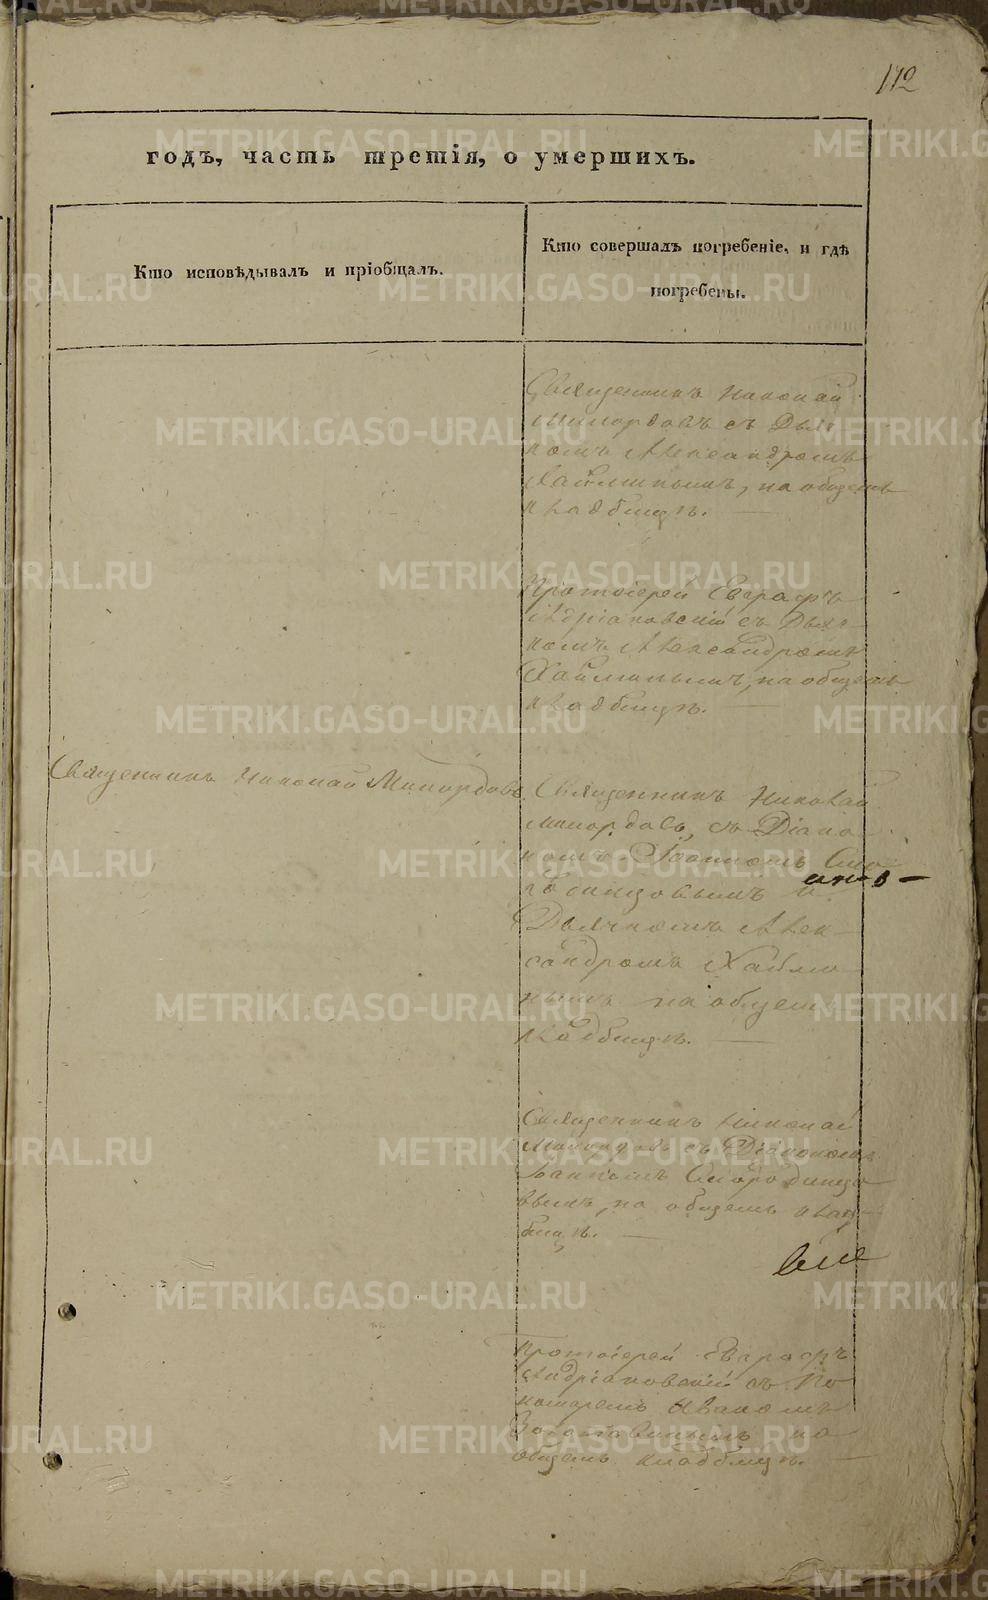 112
годъ, часть третія, о умершихъ.
Кто исповѣдывалъ и пріобщалъ.
Кто совершалъ погребеніе, и гдѣ
погребены.
Священникъ Николай
съ Дьяч-
комъ Александромъ
на общемъ
кладбищѣ. —
Протоіерей Евграфъ
Андріановскій съ Дьяч-
комъ Александромъ
на общемъ
кладбищѣ. —
Священникъ Николай
Священникъ Николай
съ Діако-
номъ Іоанномъ Смо-
и
Дьячкомъ Алек-
сандромъ
на общемъ
кладбищѣ. —
Священникъ Николай
съ Діакономъ
Іоанномъ Смородинцо-
вымъ, на общемъ клад-
бищѣ. —
Протоіерей Евграфъ
Андріановскій съ По-
номаремъ Иваномъ
на
общемъ кладбищѣ. —
METRIKI.GASO-URAL.RU